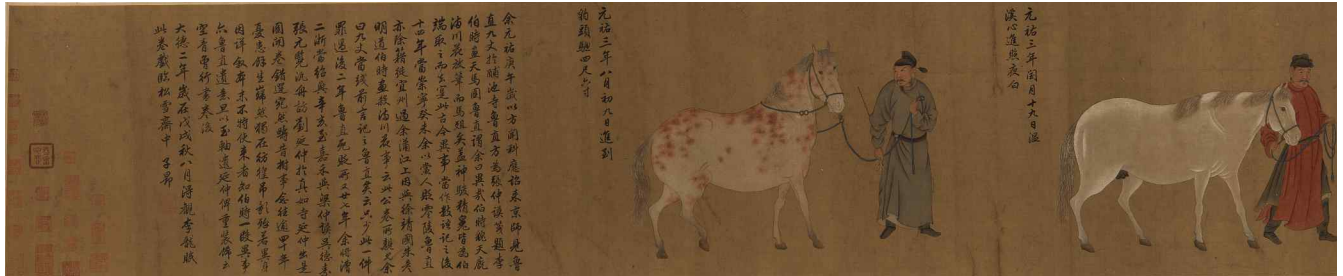 元祐三年閏月十九日溫
溪心進照夜白
元祐三年八月初九日進到
豹頭驄四尺六寸
余元祐庚午歲以方聞科應詔來京師見魯
直九丈於酺池寺魯直方為張仲謨箋題李
伯時畫天馬圖魯直謂余曰異哉伯時貌天廄
滿川花放筆而馬殂矣蓋神駿精魄皆為伯
端取之而去實此古今異事當作數語記之後
十四年當崇寧癸未余以黨人貶零陵魯直
亦除籍徙宜州過余瀟江上因與徐靖國朱彥
明道伯時畫殺滿川花事云此公卷所親見余
曰九丈當踐前言記之魯直笑云只少此一件
罪過後二年魯直死貶所又廿七年余將漕
二浙當紹興辛亥至嘉禾與梁仲謨吳德素
張元覽汎舟訪劉延仲於真如寺延仲出是
圖開卷錯愕宛然疇昔拊事念往逾四十年
憂患餘生巋然獨在徬徨弔影殆若異身
因詳敘本末不特使來者知伯時一段異事
亦魯直遺意且以玉軸遺延仲俾重裝飾云
空青曾紆書卷後
大德二年歲在戊戌秋八月得觀李龍眠
此卷戲臨松雪齋中 子昂